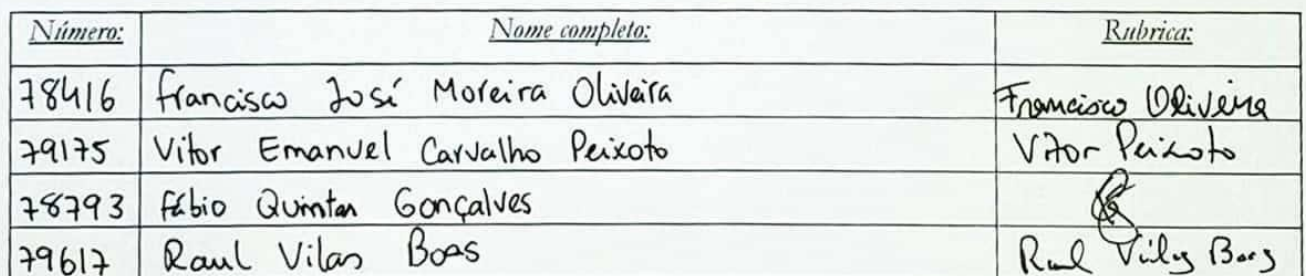 Número: Nome completo: Rubrica:
78416 Francisco José Moreira Oliveira Francisco Oliveira
79175 Vitor Emanuel Carvalho Peixoto Vitor Peixoto
78793 Fábio Quintas Gonçalves
79617 Raul Vilas Boas Raul Vilas Boas